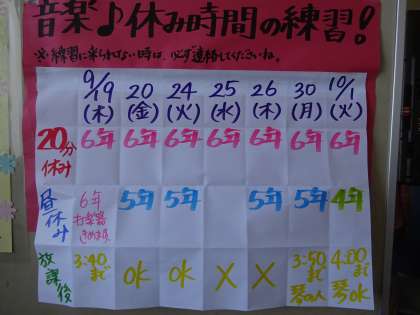 音楽♪休み時間の練習!
※練習に来られない時は、必ず連絡してくださいね。
9/19 20 24 25 26 30 10/1
(木) (金) (火) (水) (木) (月) (火)
20分休み 6年 6年 6年 6年 6年 6年 6年
昼休み 6年 5年 5年 5年 5年 4年
きめます
放課後 3:40まで OK OK X X 3:50まで 琴の人 4:00まで 琴OK